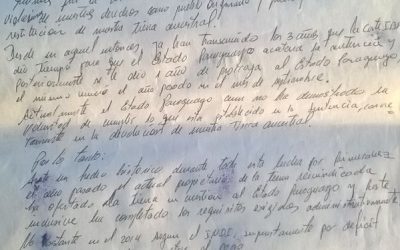 violarse nuestros derechos como pueblo originario y
restitución de nuestra tierra ancestral.
Desde en aquel entonces, ya han transcurrido los 3 años que la Corte IDH
dio tiempo para que el Estado Paraguayo acatara la sentencia y
posteriormente se le dio 1 año de prórroga al Estado Paraguayo
el mismo venció el año pasado en el mes de septiembre.
Actualmente el Estado Paraguayo aun no ha demostrado la
voluntad de cumplir lo que está establecido en la sentencia,
en la devolución de nuestra Tierra ancestral.
Por lo tanto:
un hecho histórico durante toda esta lucha por primera vez
el año pasado el actual propietario de la tierra reivindicada
ha ofertado la tierra en cuestión al Estado Paraguayo y hasta
inclusive ha completado los requisitos exigidos administrativamente
lo bastante en el 2014 según el INDI, supuestamente por déficit
el pago